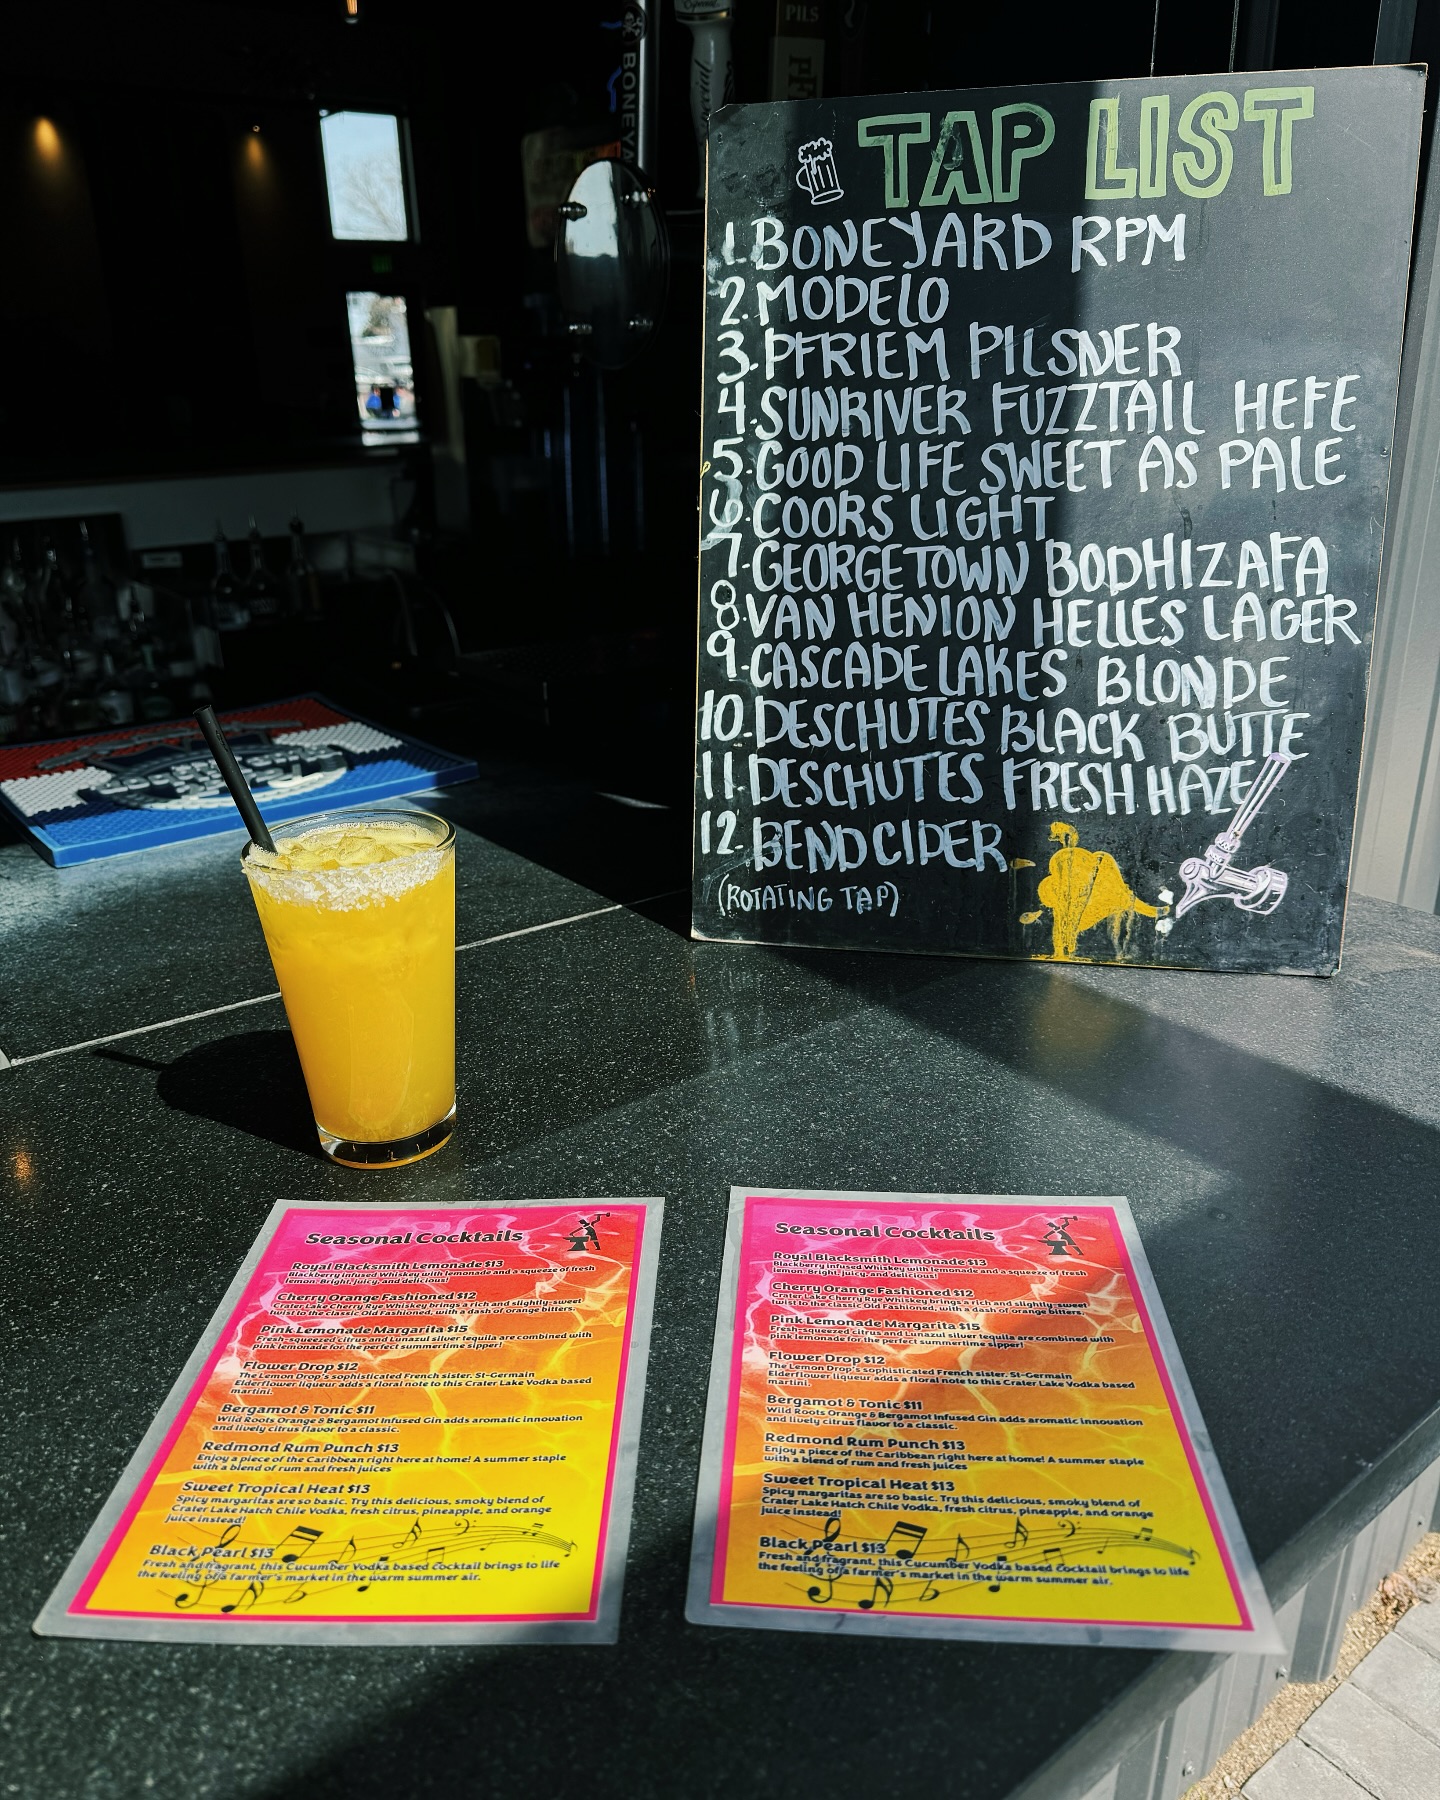 Especial
PILS
BONEYA
TAP LIST
1. BONEYARD RPM
2. MODELO
3. PFRIEM PILSNER
4. SUNRIVER FUZZTAIL HEFE
5. GOOD LIFE SWEET AS PALE
6. COORS LIGHT
7. GEORGETOWN BODHIZAFA
8. VAN HENION HELLES LAGER
9. CASCADE LAKES BLONDE
10. DESCHUTES BLACK BUTTE
11. DESCHUTES FRESH HAZE
12. BEND CIDER
(ROTATING TAP)
Seasonal Cocktails
Royal Blacksmith Lemonade $13
Blackberry infused Whiskey with lemonade and a squeeze of fresh
lemon! Bright, juicy, and delicious!
Cherry Orange Fashioned $12
Crater Lake Cherry Rye Whiskey brings a rich and slightly-sweet
twist to the classic Old Fashioned, with a dash of orange bitters.
Pink Lemonade Margarita $15
Fresh-squeezed citrus and Lunazul silver tequila are combined with
pink lemonade for the perfect summertime sipper!
Flower Drop $12
The Lemon Drop's sophisticated French sister. St-Germain
Elderflower liqueur adds a floral note to this Crater Lake Vodka based
martini.
Bergamot & Tonic $11
Wild Roots Orange & Bergamot Infused Gin adds aromatic innovation
and lively citrus flavor to a classic.
Redmond Rum Punch $13
Enjoy a piece of the Caribbean right here at home! A summer staple
with a blend of rum and fresh juices
Sweet Tropical Heat $13
Spicy margaritas are so basic. Try this delicious, smoky blend of
Crater Lake Hatch Chile Vodka, fresh citrus, pineapple, and orange
juice instead!
Black Pearl $13
Fresh and fragrant, this Cucumber Vodka based cocktail brings to life
the feeling of a farmer's market in the warm summer air.
Seasonal Cocktails
Royal Blacksmith Lemonade $13
Blackberry infused Whiskey with lemonade and a squeeze of fresh
lemon! Bright, juicy, and delicious!
Cherry Orange Fashioned $12
Crater Lake Cherry Rye Whiskey brings a rich and slightly-sweet
twist to the classic Old Fashioned, with a dash of orange bitters.
Pink Lemonade Margarita $15
Fresh-squeezed citrus and Lunazul silver tequila are combined with
pink lemonade for the perfect summertime sipper!
Flower Drop $12
The Lemon Drop's sophisticated French sister. St-Germain
Elderflower liqueur adds a floral note to this Crater Lake Vodka based
martini.
Bergamot & Tonic $11
Wild Roots Orange & Bergamot Infused Gin adds aromatic innovation
and lively citrus flavor to a classic.
Redmond Rum Punch $13
Enjoy a piece of the Caribbean right here at home! A summer staple
with a blend of rum and fresh juices
Sweet Tropical Heat $13
Spicy margaritas are so basic. Try this delicious, smoky blend of
Crater Lake Hatch Chile Vodka, fresh citrus, pineapple, and orange
juice instead!
Black Pearl $13
Fresh and fragrant, this Cucumber Vodka based cocktail brings to life
the feeling of a farmer's market in the warm summer air.